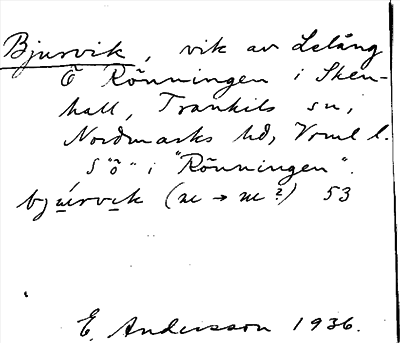 Bjurvik, vik av Lelång
Ö Rönningen i Sken-
hall, Trankils sn,
Nordmarks hd, Vrml l.
S "ö" i "Rönningen".
bju̲rvi̲k (u → u?) 53
E. Andersson 1936.